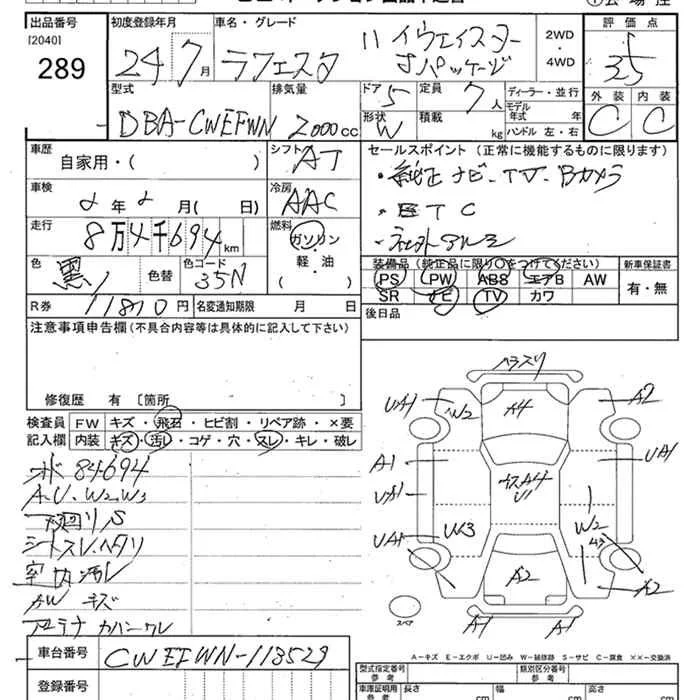 出品番号
[2040]
289
初度登録年月
24 7月
車名・グレード
ラフェスタ
ハイウェイスター
Jパッケージ
2WD
・
4WD
評価点
3.5
外装 内装
C C
型式
DBA-CWEFWN
排気量
2000cc
ドア 5
定員 7人
形状 W
積載 kg
ディーラー・並行
モデル年式 年
ハンドル 左・右
車歴
自家用・( )
シフト AT
車検
2年2月( 日)
冷房 AAC
走行
8万4千694km
燃料
ガソリン
・
軽・油
( )
色 黒
色替
色コード 35N
R券 11810円
名変通知期限 月 日
セールスポイント(正常に機能するものに限ります)
・純正ナビ・TV・Bカメラ
・ETC
・社外アルミ
装備品(純正品に限り○をつけてください)
PS PW ABS エアB AW
SR ナビ TV カワ
新車保証書
有・無
後日品
注意事項申告欄(不具合内容等は具体的に記入して下さい)
修復歴 有 [箇所 ]
検査員記入欄
FW キズ・飛石・ヒビ割・リペア跡・×要
内装 キズ・汚レ・コゲ・穴・スレ・キレ・破レ
84694
A.U.W2.W3
下廻りS
シートスレ.ヘタリ
室内汚レ
AW キズ
アンテナ カバーワレ
UA1
W2
A4
A2
A1
UA1
UA1
W3
UA1
W2
A2
A2
A1
A1
スペア
A-キズ E-エクボ U-凹み W-補修跡 S-サビ C-腐食 ××-交換済
車台番号
CWEFWN-113529
登録番号
型式指定番号
参考
類別区分番号
参考
車庫証明用
参考
長さ cm
幅 cm
高さ cm